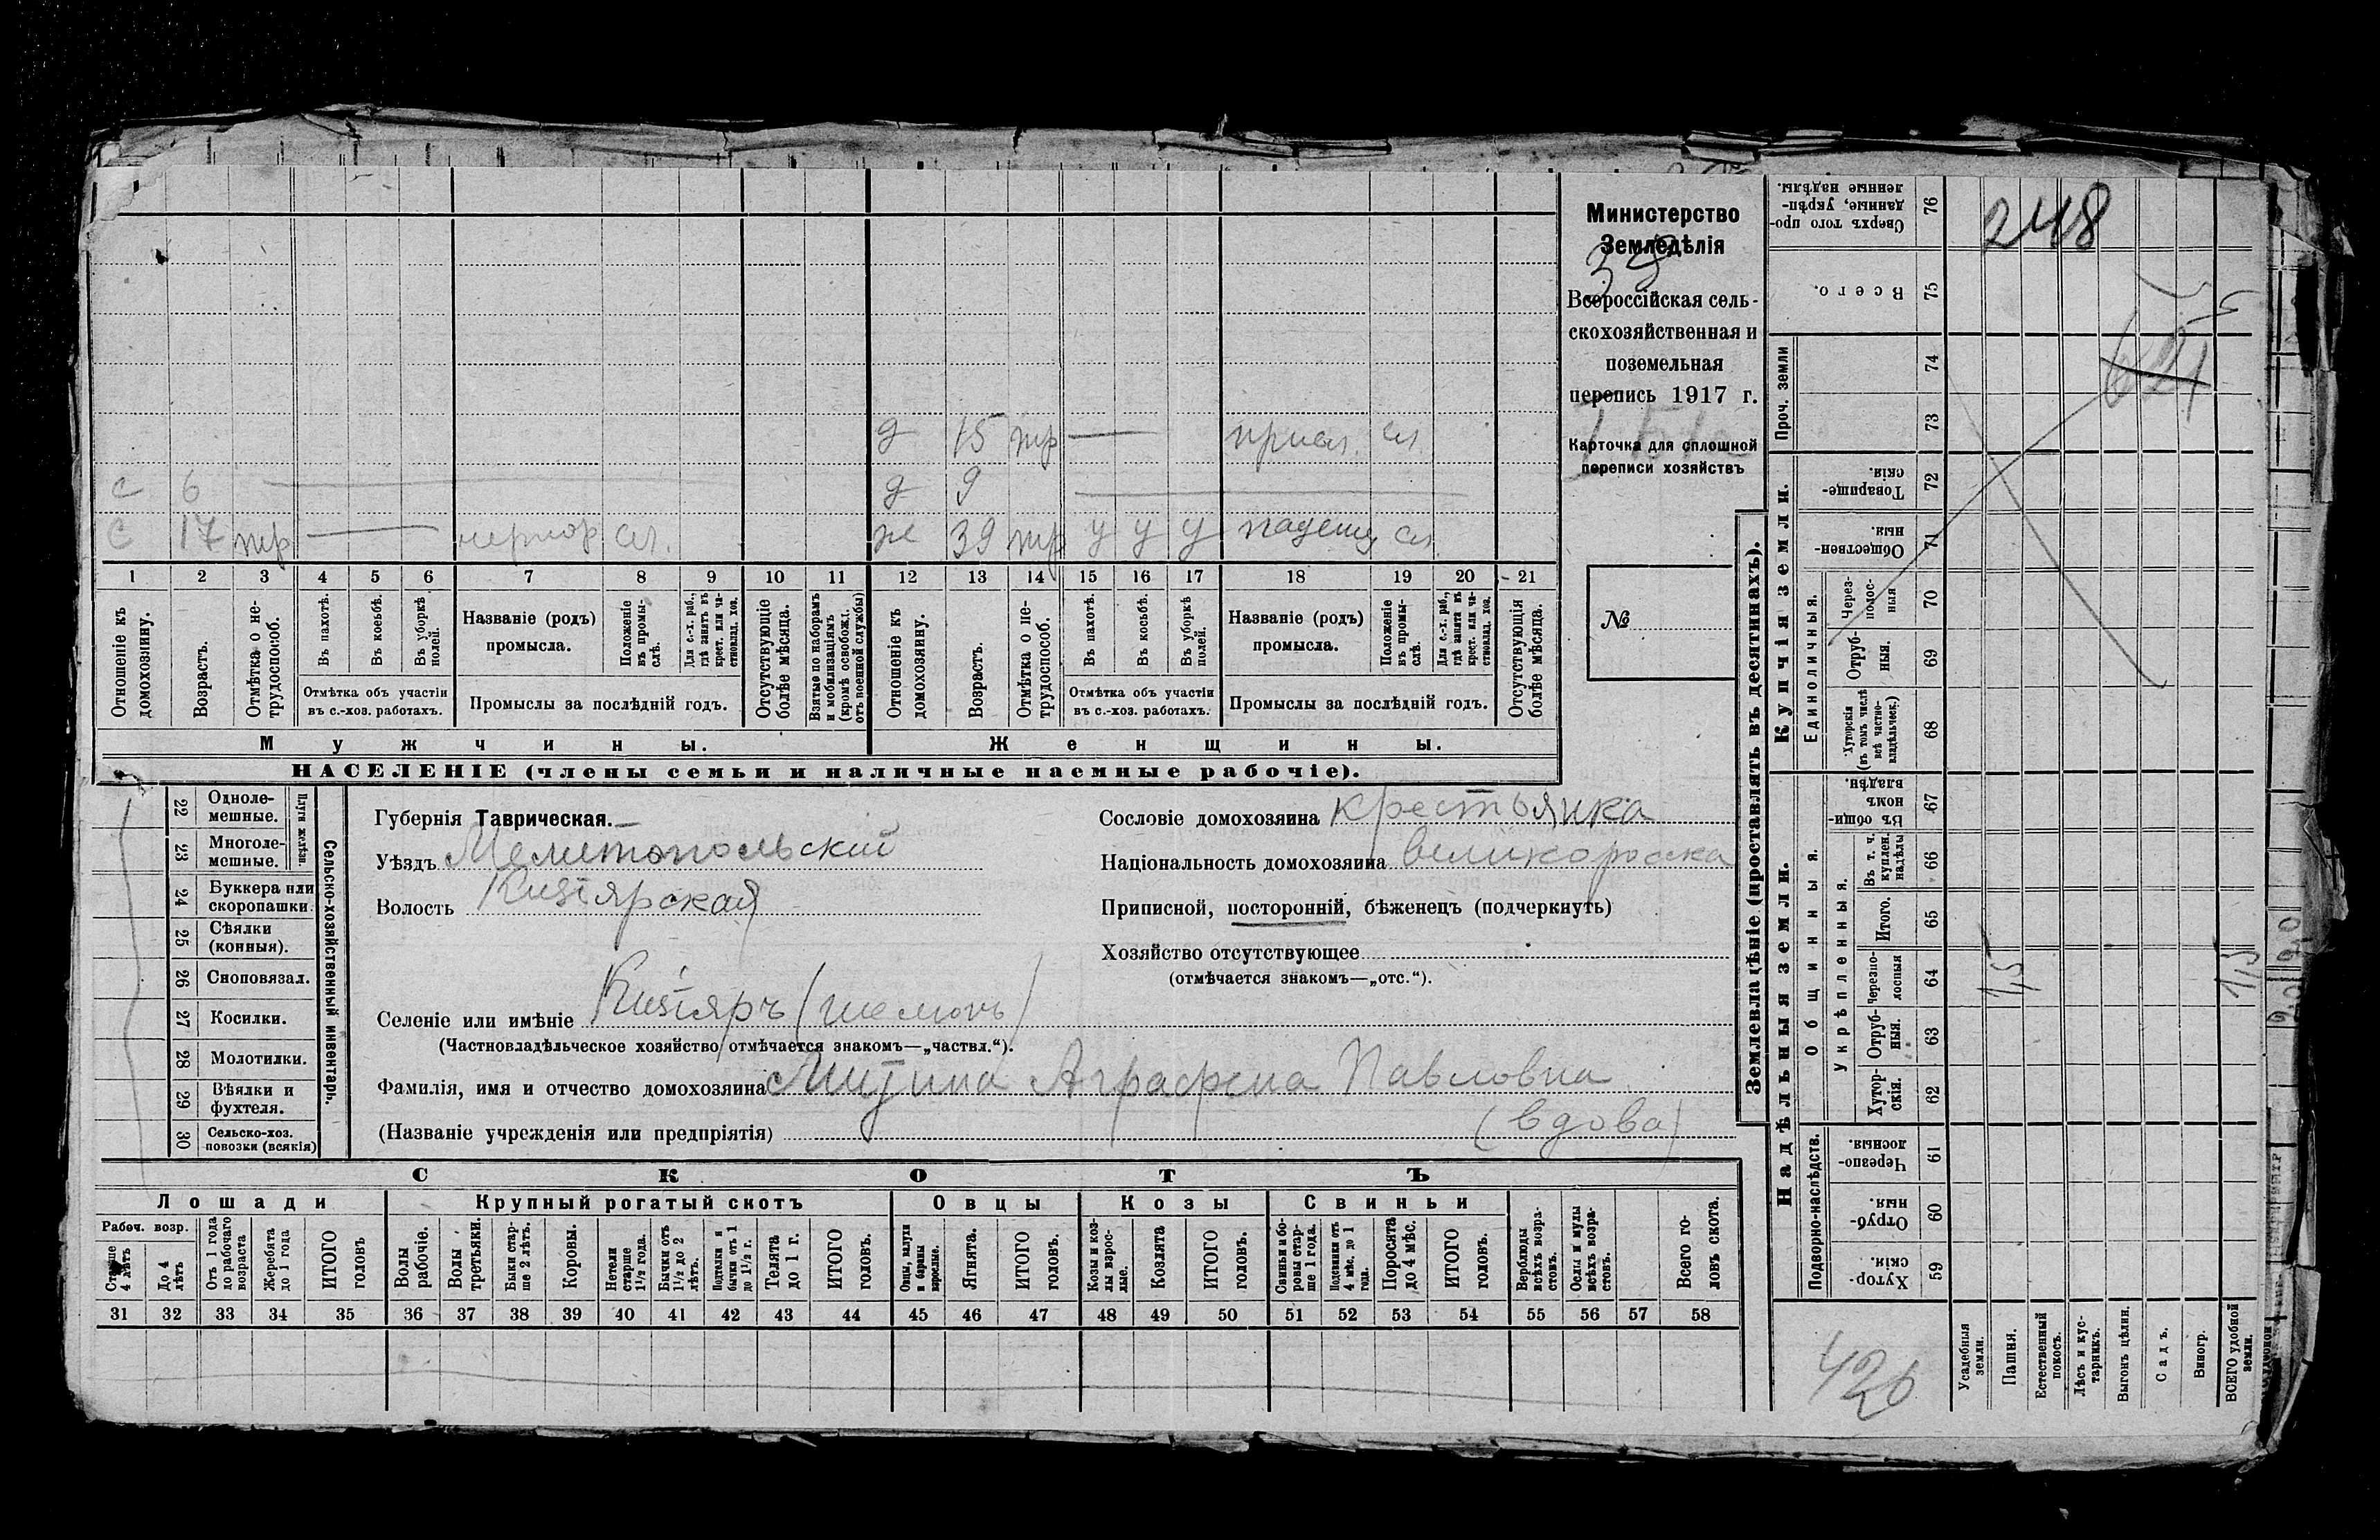 Министерство
Земледѣлія
38
Всероссійская сель-
скохозяйственная и
поземельная
перепись 1917 г.
Карточка для сплошной
переписи хозяйствъ
№
248
д 15 тр — присл. сл.
с 6 — д 9 —
с 17 тр — чернор сл. ж 39 тр у у у паденщ сл.
1 2 3 4 5 6 7 8 9 10 11 12 13 14 15 16 17 18 19 20 21
Отношеніе къ домохозяину.
Возрастъ.
Отмѣтка о не-трудоспособ.
Въ пахотѣ.
Въ косьбѣ.
Въ уборкѣ полей.
Отмѣтка объ участіи въ с.-хоз. работахъ.
Названіе (родъ) промысла.
Положеніе въ промы-слѣ.
Для с.-х. раб., гдѣ занятъ въ крест. или ча-стновлад. хоз.
Промыслы за послѣдній годъ.
Отсутствующіе болѣе мѣсяца.
Взятые по наборамъ и мобилизаціямъ (кромѣ освобож. отъ военной службы)
Отношеніе къ домохозяину.
Возрастъ.
Отмѣтка о не-трудоспособ.
Въ пахотѣ.
Въ косьбѣ.
Въ уборкѣ полей.
Отмѣтка объ участіи въ с.-хоз. работахъ.
Названіе (родъ) промысла.
Положеніе въ промы-слѣ.
Для с.-х. раб., гдѣ занята въ крест. или ча-стновлад. хоз.
Промыслы за послѣдній годъ.
Отсутствующія болѣе мѣсяца.
Мужчины. Женщины.
НАСЕЛЕНІЕ (члены семьи и наличные наемные рабочіе).
Губернія Таврическая.
Уѣздъ Мелитопольскій
Волость Кизіярская
Селеніе или имѣніе Кизіяръ
(Частновладѣльческое хозяйство отмѣчается знакомъ—„частвл.“).
Фамилія, имя и отчество домохозяина Аграфена Павловна
(Названіе учрежденія или предпріятія) (вдова)
Сословіе домохозяина крестьянка
Національность домохозяина великоросска
Приписной, посторонній, бѣженецъ (подчеркнуть)
Хозяйство отсутствующее
(отмѣчается знакомъ—„отс.“).
Сельско-хозяйственный инвентарь.
Плуги желѣзн.
22 Одноле-мешные.
23 Многоле-мешные.
24 Буккера или скоропашки.
25 Сѣялки (конныя).
26 Сноповязал.
27 Косилки.
28 Молотилки.
29 Вѣялки и фухтеля.
30 Сельско-хоз. повозки (всякія)
СКОТЪ
Лошади Крупный рогатый скотъ Овцы Козы Свиньи
Рабоч. возр.
Старше 4 лѣтъ
До 4 лѣтъ
Отъ 1 года до рабочаго возраста
Жеребята до 1 года
ИТОГО головъ
Волы рабочіе.
Волы третьяки.
Быки стар-ше 2 лѣтъ.
Коровы.
Нетели старше 1½ года.
Бычки отъ 1½ до 2 лѣтъ.
Подтелки и бычки отъ 1 до 1½ г.
Телята до 1 г.
ИТОГО головъ.
Овцы, валухи и бараны взрослые.
Ягнята.
ИТОГО головъ.
Козы и коз-лы взрос-лые.
Козлята
ИТОГО головъ.
Свиньи и бо-ровы стар-ше 1 года.
Подсвинки отъ 4 мѣс. до 1 года.
Поросята до 4 мѣс.
ИТОГО головъ.
Верблюды всѣхъ возра-стовъ.
Ослы и мулы всѣхъ возра-стовъ.
Всего го-ловъ скота.
31 32 33 34 35 36 37 38 39 40 41 42 43 44 45 46 47 48 49 50 51 52 53 54 55 56 57 58
Землевладѣніе (проставлять въ десятинахъ).
Купчія земли.
Надѣльныя земли.
Сверхъ того про-данные, укрѣп-ленные надѣлы. 76
Всего. 75
Проч. земли 74 73
Товарище-скія. 72
Обществен-ныя. 71
Единоличныя.
Через-полос-ныя 70
Отруб-ныя. 69
Хуторскія (въ томъ числѣ всѣ частно-владѣльческ.) 68
Общинныя.
Въ общи-номъ владѣн. 67
Укрѣпленныя.
Въ т. ч. куплен. надѣлы 66
Итого. 65
Черезпо-лосныя 64 1,5 1,5
Отруб-ныя. 63
Хутор-скія. 62
Подворно-наслѣдств.
Черезпо-лосныя. 61
Отруб-ныя. 60
Хутор-скія. 59
426
Усадебныя земли.
Пашня.
Естественный покосъ.
Лѣсъ и кус-тарникъ.
Выгонъ цѣлин.
Садъ.
Виногр.
ВСЕГО удобной земли.